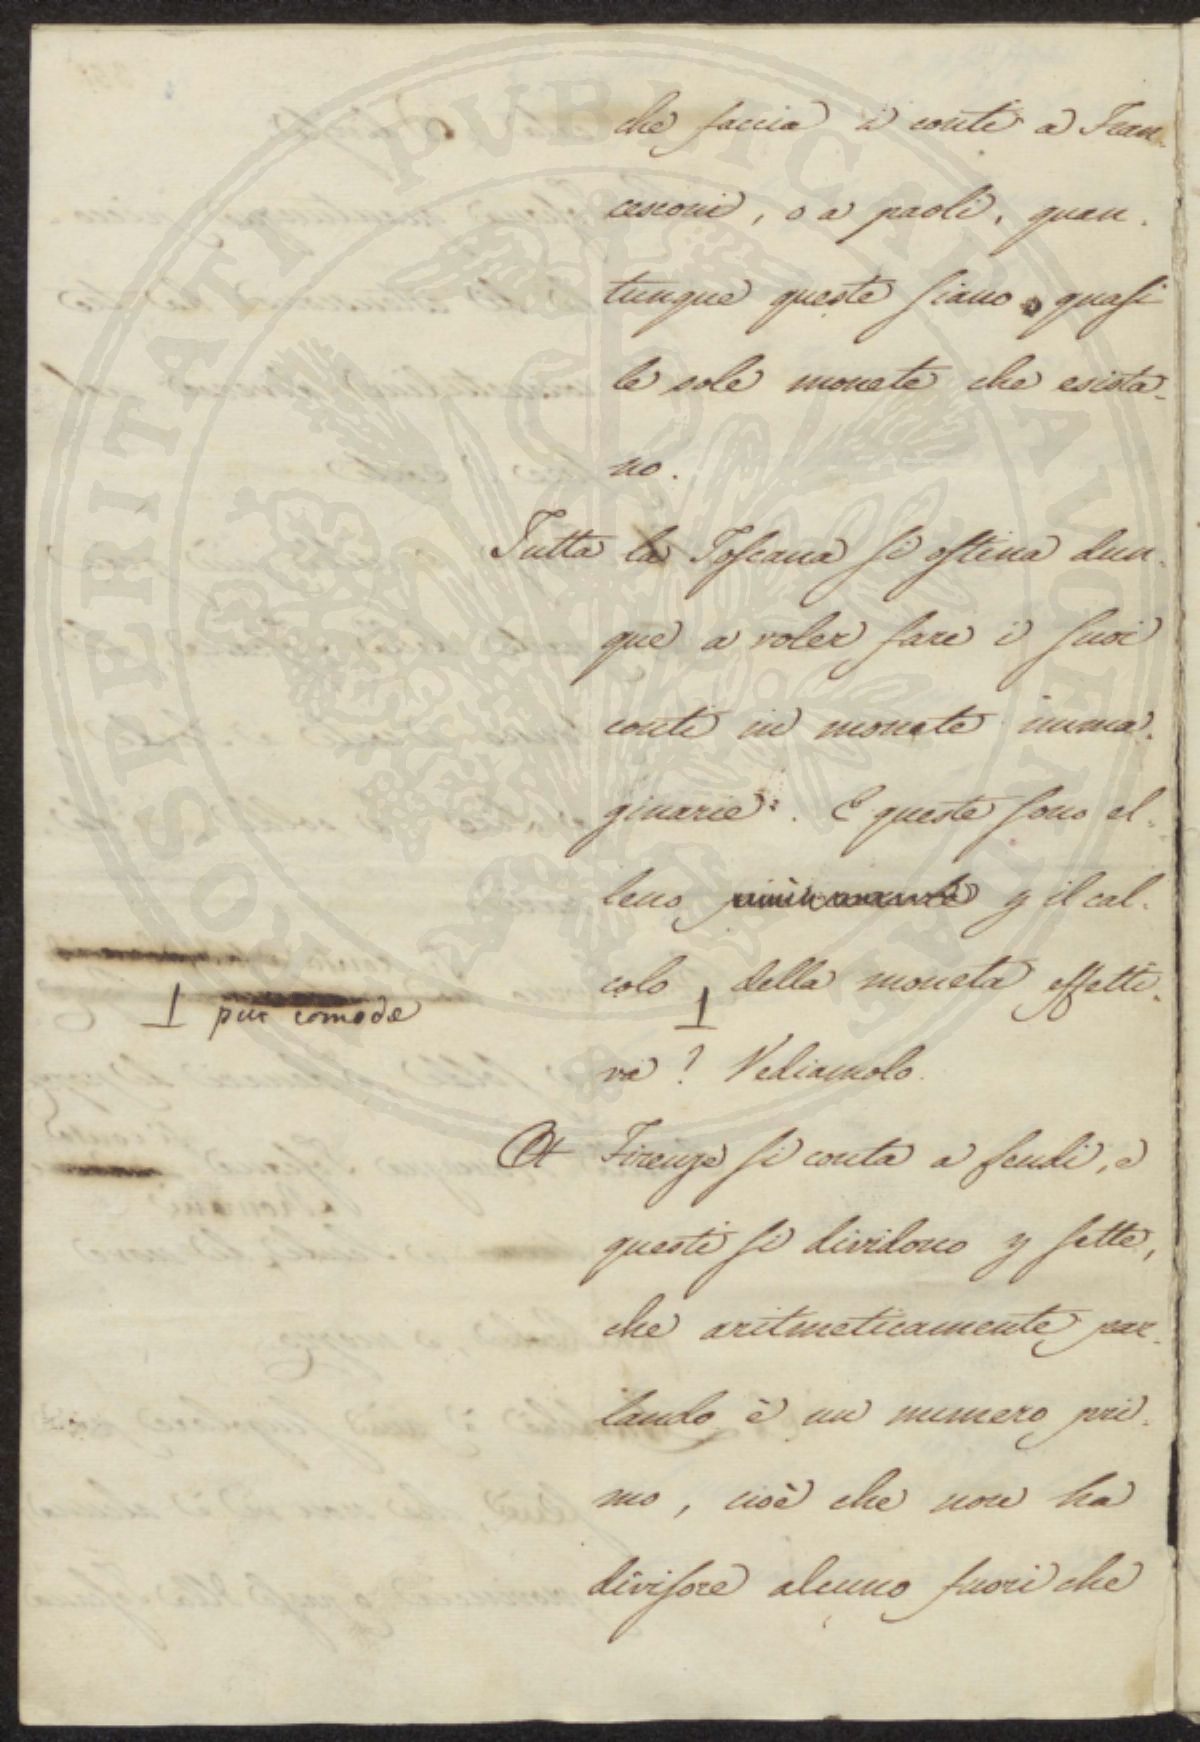 che faccia i conti a Fran-
cesconi, o a paoli, quan-
tunque queste siano quasi
le sole monete che esista-
no.
Tutta la Toscana si ostina dun-
que a voler fare i suoi
conti in monete imma-
ginarie. E queste sono el-
leno p il cal-
colo ⊥ della moneta effetti-
⊥ piu comode
va? Vediamolo.
A Firenze si conta a scudi, e
questi si dividono p sette,
che aritmeticamente par-
lando è un numero pri-
mo, cioè che non ha
divisore alcuno fuori che
PROSPERITATI PVBLICAE AVGENDAE